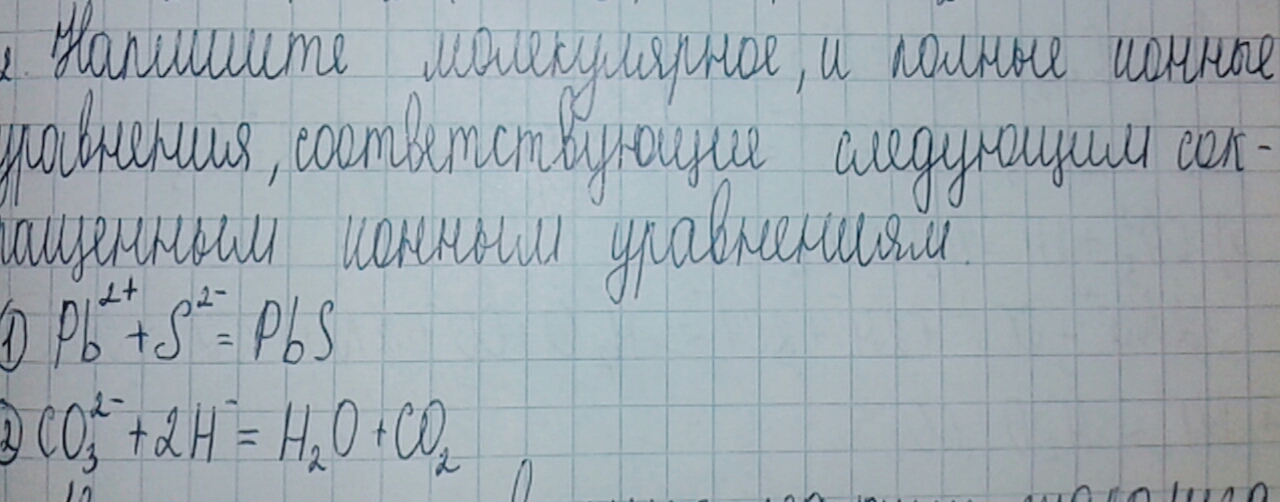 2. Напишите молекулярное, и полные ионные
уравнения, соответствующие следующим сок-
ращенным ионным уравнениям.
1) Pb²⁺ + S²⁻ = PbS
2) CO₃²⁻ + 2H⁻ = H₂O + CO₂